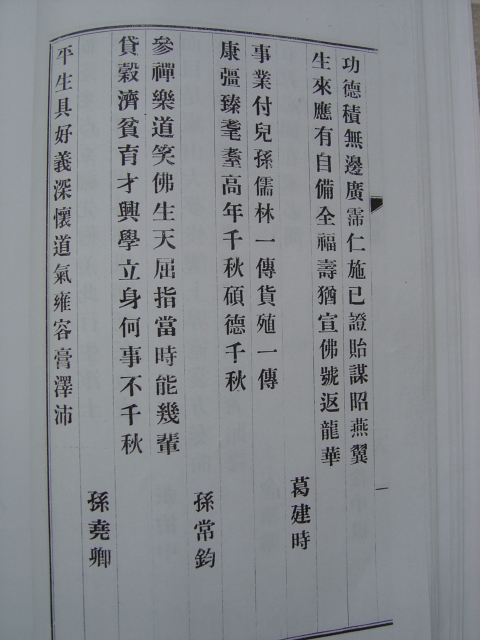 功德積無邊廣霈仁施已證貽謀昭燕翼
生來應有自備全福壽猶宣佛號返龍華
葛建時
事業付兒孫儒林一傳貨殖一傳
康彊臻耄耋高年千秋碩德千秋
孫常鈞
參禪樂道笑佛生天屈指當時能幾輩
貸穀濟貧育才興學立身何事不千秋
孫堯卿
平生具好義深懷道氣雍容膏澤沛